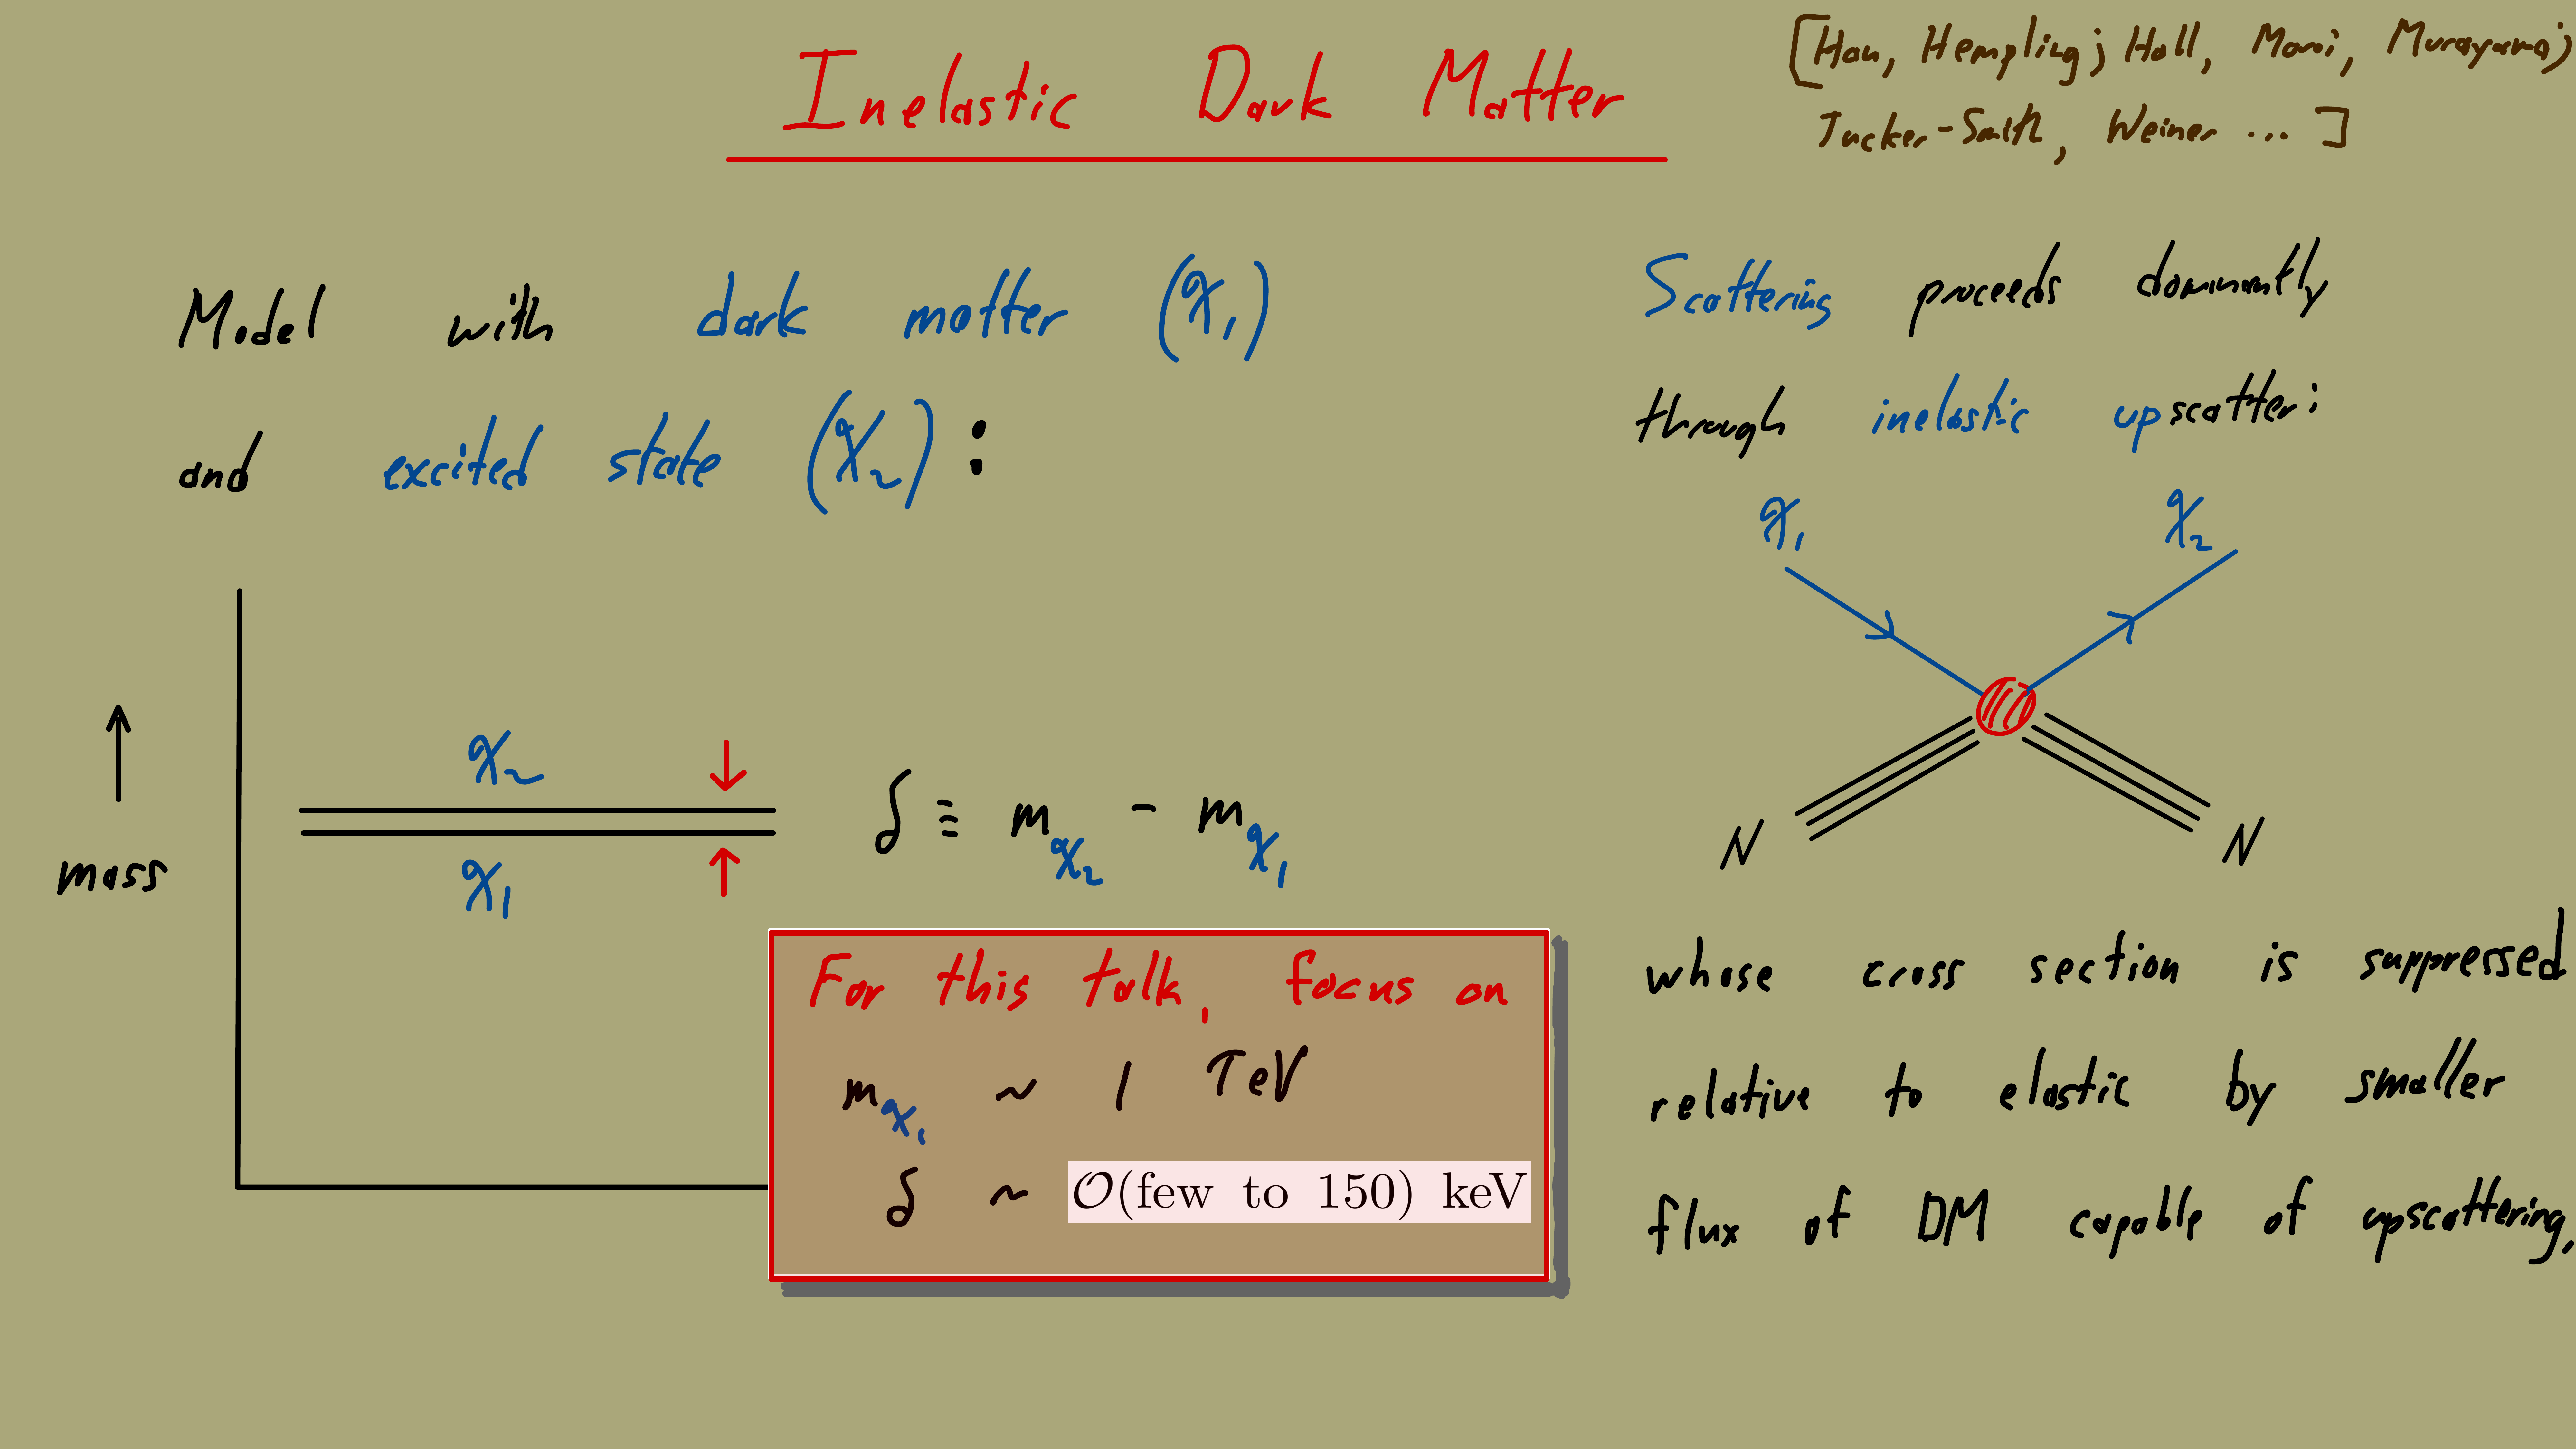 Inelastic Dark Matter
[Han, Hempfling; Hall, Moroi, Murayama;
Tucker-Smith, Weiner ... ]
Model with dark matter (χ₁)
and excited state (χ₂) :
mass
χ₂
χ₁
δ ≡ m_χ₂ - m_χ₁
For this talk, focus on
m_χ₁ ~ 1 TeV
δ ~ 𝒪(few to 150) keV
Scattering proceeds dominantly
through inelastic upscatter:
χ₁ χ₂
N N
whose cross section is suppressed
relative to elastic by smaller
flux of DM capable of upscattering.